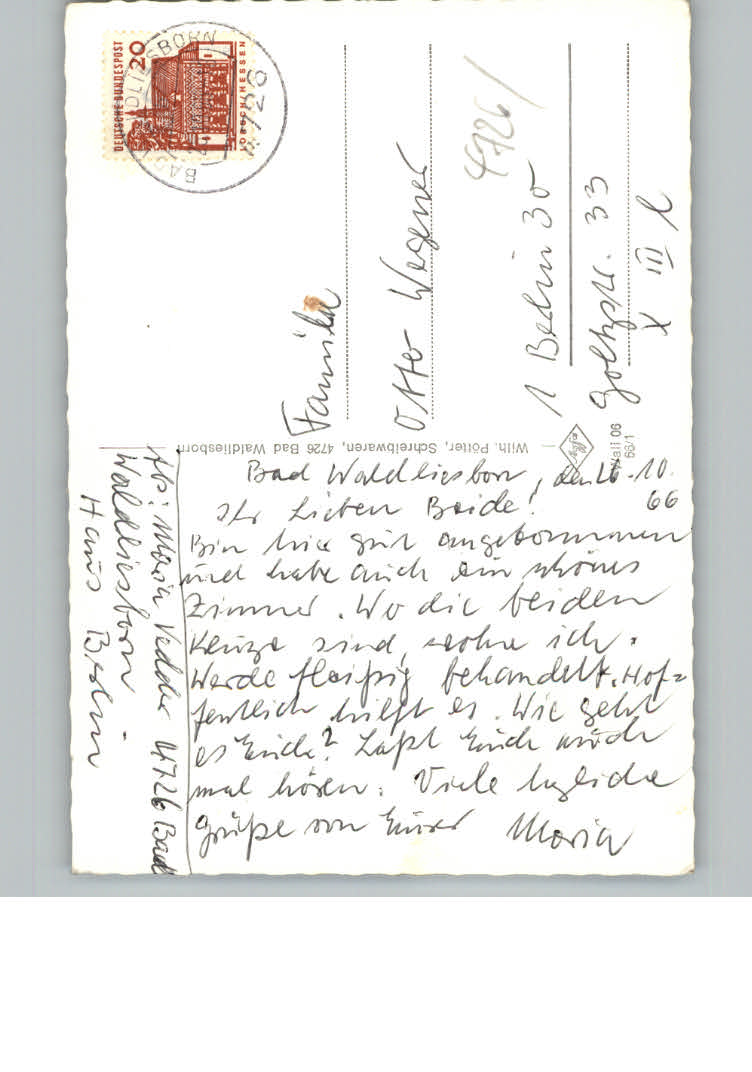 Bad Waldliesborn, den 26.10.
66
Ihr Lieben Beide!
Bin hier gut angekommen
und habe auch ein schönes
Zimmer. Wo die beiden
Kreuze sind, wohne ich.
Werde fleißig behandelt. Hof=
fentlich hilft es. Wie geht
es Euch? Laßt Euch auch
mal hören. Viele herzliche
Grüße von Eurer Maria
Abs: Maria Vedder 4726 Bad
Waldliesborn
Haus Berlin
Familie
Otto Wegener
1 Berlin 30
Goltzstr. 33
X III l
4726/
Wilh. Pötter, Schreibwaren, 4726 Bad Waldliesborn
Agfa
Wall 06
66/1
DEUTSCHE BUNDESPOST
20
LORSCH/HESSEN
BAD WALDLIESBORN
4726